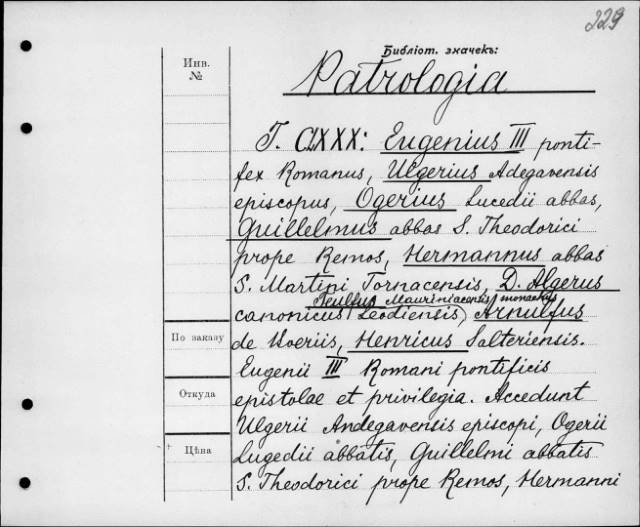 229
Библіот. значекъ:
Инв.
№
Patrologia
T. CLXXX: Eugenius III ponti-
fex Romanus, Ulgerius Adegavensis
episcopus, Ogerius Lucedii abbas,
Guillelmus abbas S. Theodorici
prope Remos, Hermannus abbas
S. Martini Tornacensis, D. Algerus
Teulfus Mauriniacensis monachus
canonicus Leodiensis, Arnulfus
По заказу
de Boeriis, Henricus Salteriensis.
Eugenii III Romani pontificis
Откуда
epistolae et privilegia. Accedunt
Ulgerii Andegavensis episcopi, Ogerii
Цѣна
Lugedii abbatis, Guillelmi abbatis
S. Theodorici prope Remos, Hermanni